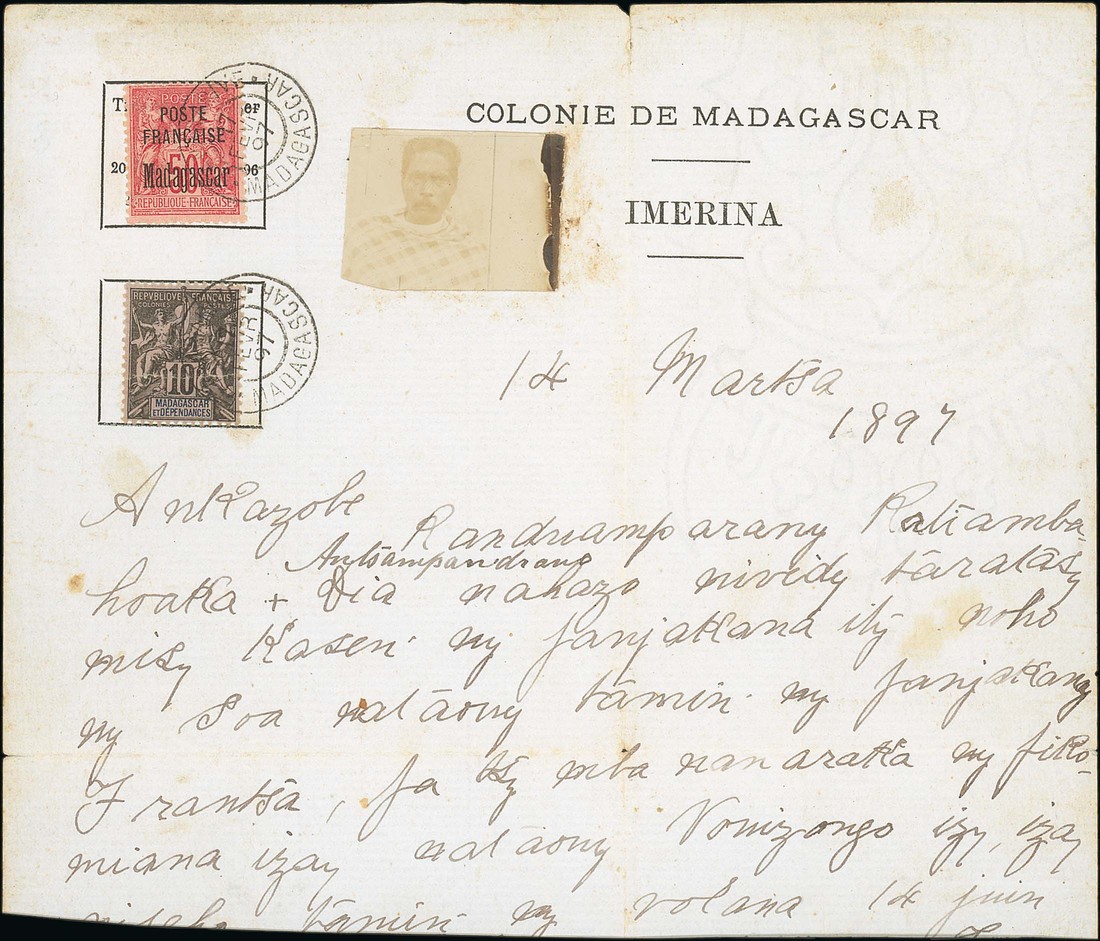 POSTE
POSTE
FRANÇAISE
50
Madagascar
REPUBLIQUE FRANÇAISE
20
96
MADAGASCAR
FEVR
97
COLONIE DE MADAGASCAR
IMERINA
REPUBLIQUE FRANÇAISE
COLONIES POSTES
10
MADAGASCAR
ET DÉPENDANCES
MADAGASCAR
FEVR
97
14 Martsa
1897
Ankazobe
Randriamparany Ratsimba-
Antsampandrano
hoaka + Dia nahazo nividy taratasy
misy Kasen' ny fanjakana izy noho
ny soa nataony tamin' ny fanjakany
Frantsa, fa tsy mba nanaraka ny fiko-
miana izay nataony Vonizongo izy, izay
tamin' ny volana 14 juin